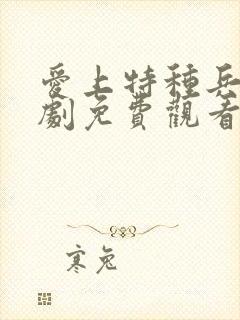 愛上特種兵
劇免費觀看
寒兔